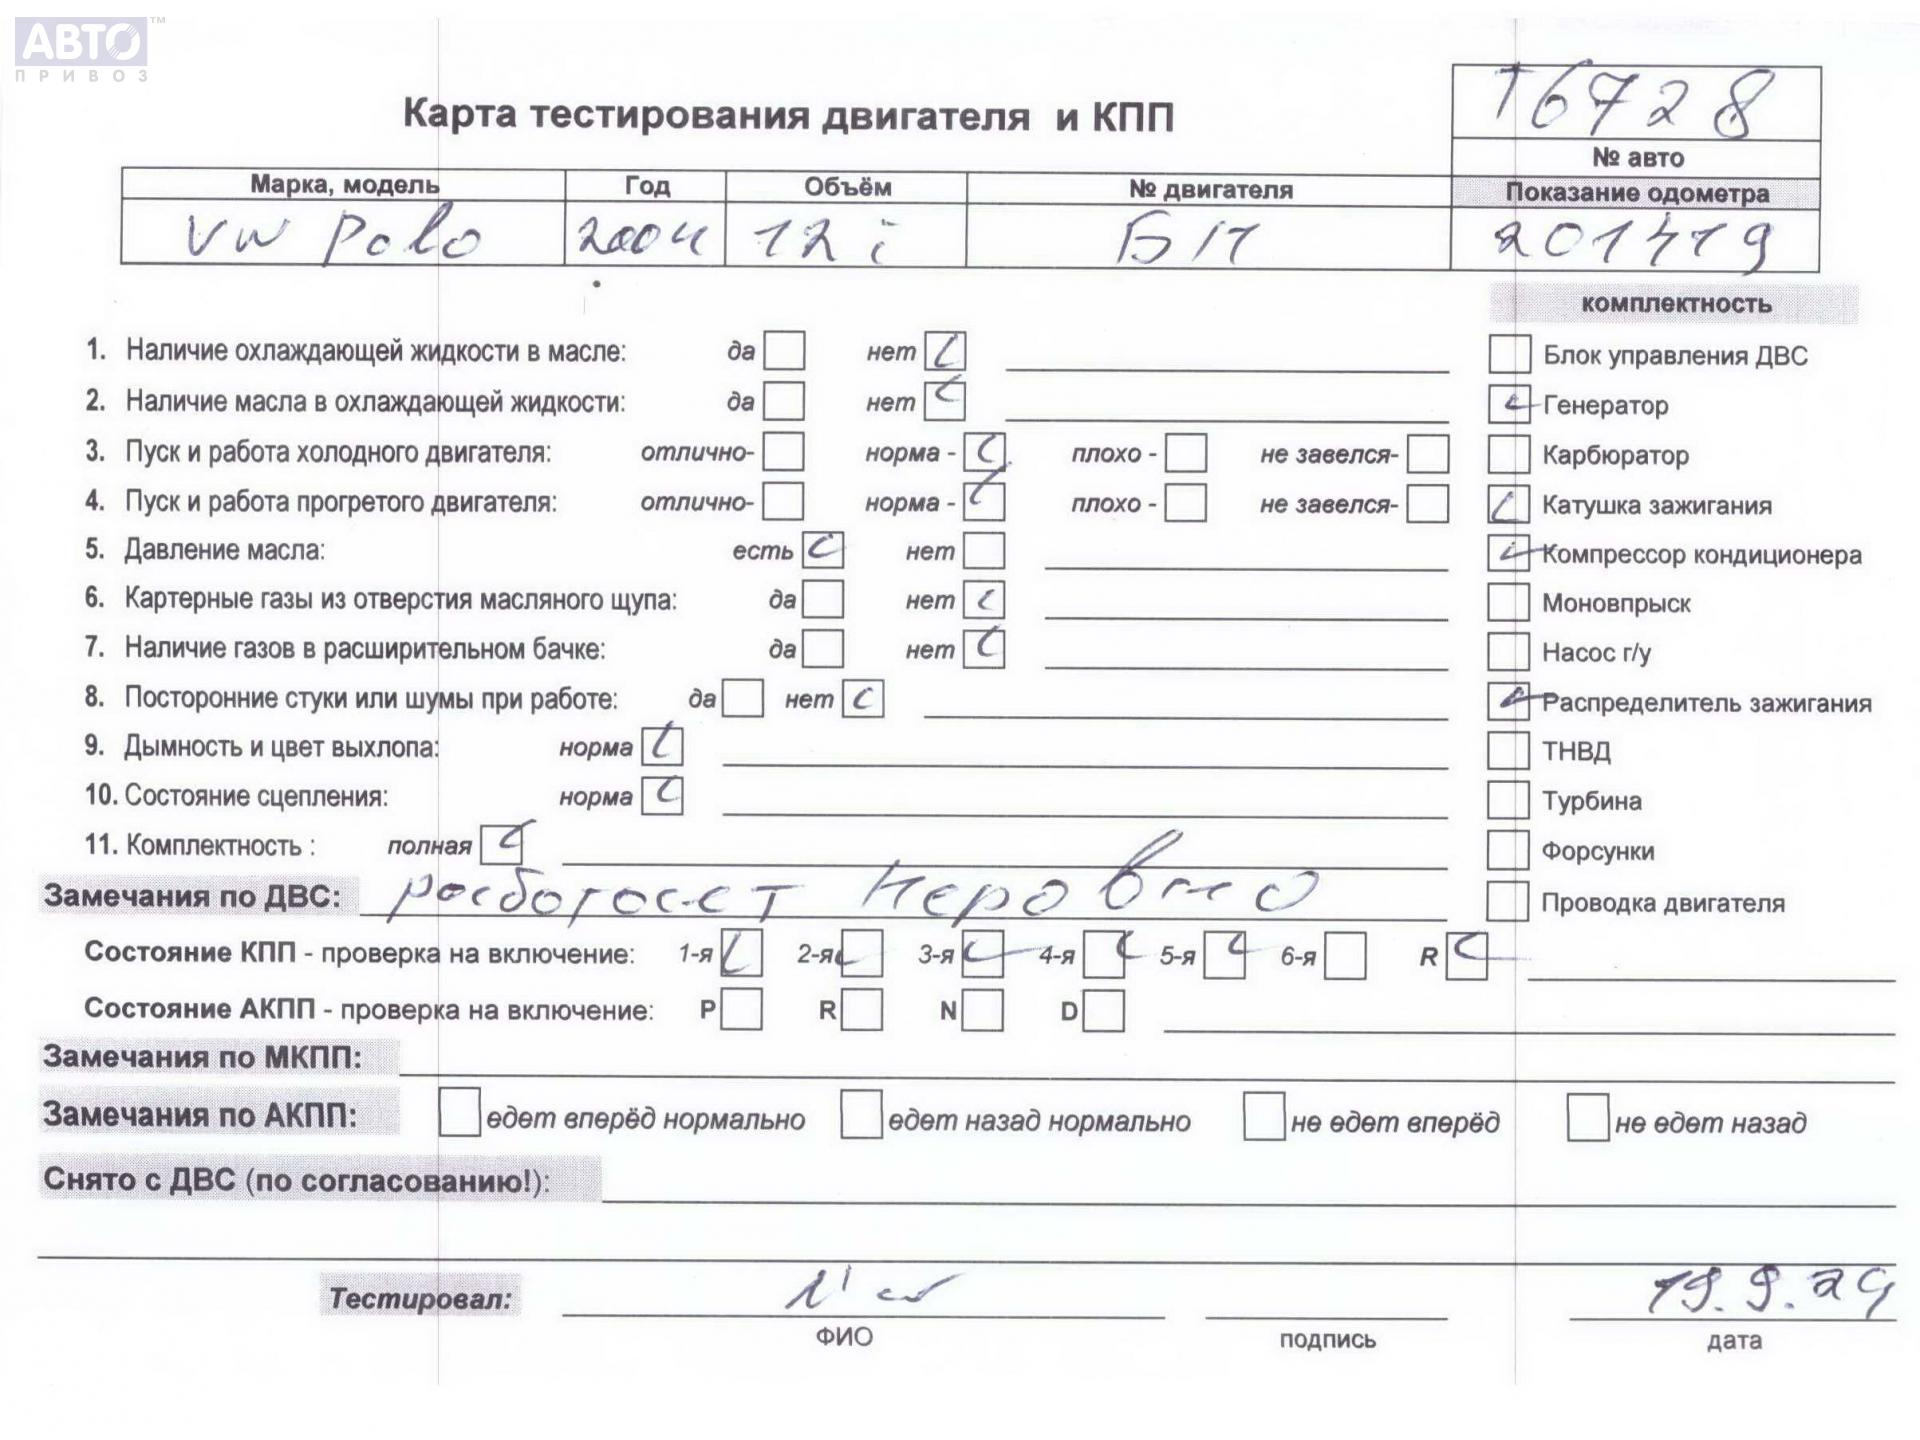 АВТО™
ПРИВОЗ
Т6728
Карта тестирования двигателя и КПП
№ авто
Марка, модель Год Объём № двигателя Показание одометра
VW Polo 2004 12 i Б/Н 201419
комплектность
1. Наличие охлаждающей жидкости в масле: да нет Блок управления ДВС
2. Наличие масла в охлаждающей жидкости: да нет Генератор
3. Пуск и работа холодного двигателя: отлично- норма - плохо - не завелся- Карбюратор
4. Пуск и работа прогретого двигателя: отлично- норма - плохо - не завелся- Катушка зажигания
5. Давление масла: есть нет Компрессор кондиционера
6. Картерные газы из отверстия масляного щупа: да нет Моновпрыск
7. Наличие газов в расширительном бачке: да нет Насос г/у
8. Посторонние стуки или шумы при работе: да нет Распределитель зажигания
9. Дымность и цвет выхлопа: норма ТНВД
10. Состояние сцепления: норма Турбина
11. Комплектность : полная Форсунки
Замечания по ДВС: работает неровно Проводка двигателя
Состояние КПП - проверка на включение: 1-я 2-я 3-я 4-я 5-я 6-я R
Состояние АКПП - проверка на включение: P R N D
Замечания по МКПП:
Замечания по АКПП: едет вперёд нормально едет назад нормально не едет вперёд не едет назад
Снято с ДВС (по согласованию!):
Тестировал: 19.9.24
ФИО подпись дата